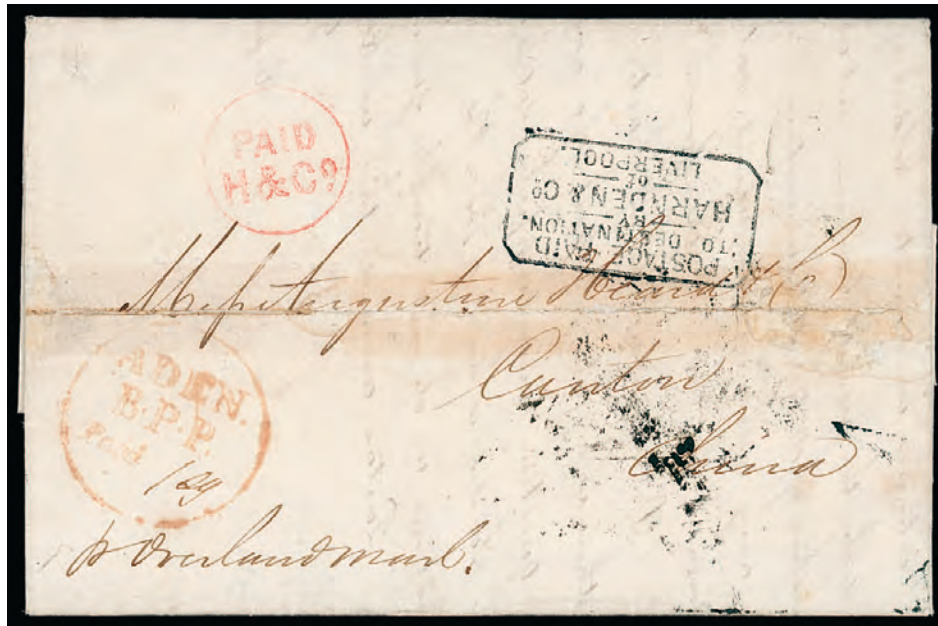 PAID
H & Co
POSTAGE PAID
TO DESTINATION.
BY
HARNDEN & Co
OF
LIVERPOOL.
Messrs Augustine Heard & Co
Canton
China
ADEN.
B.P.P.
Paid
129
p Overland mail.